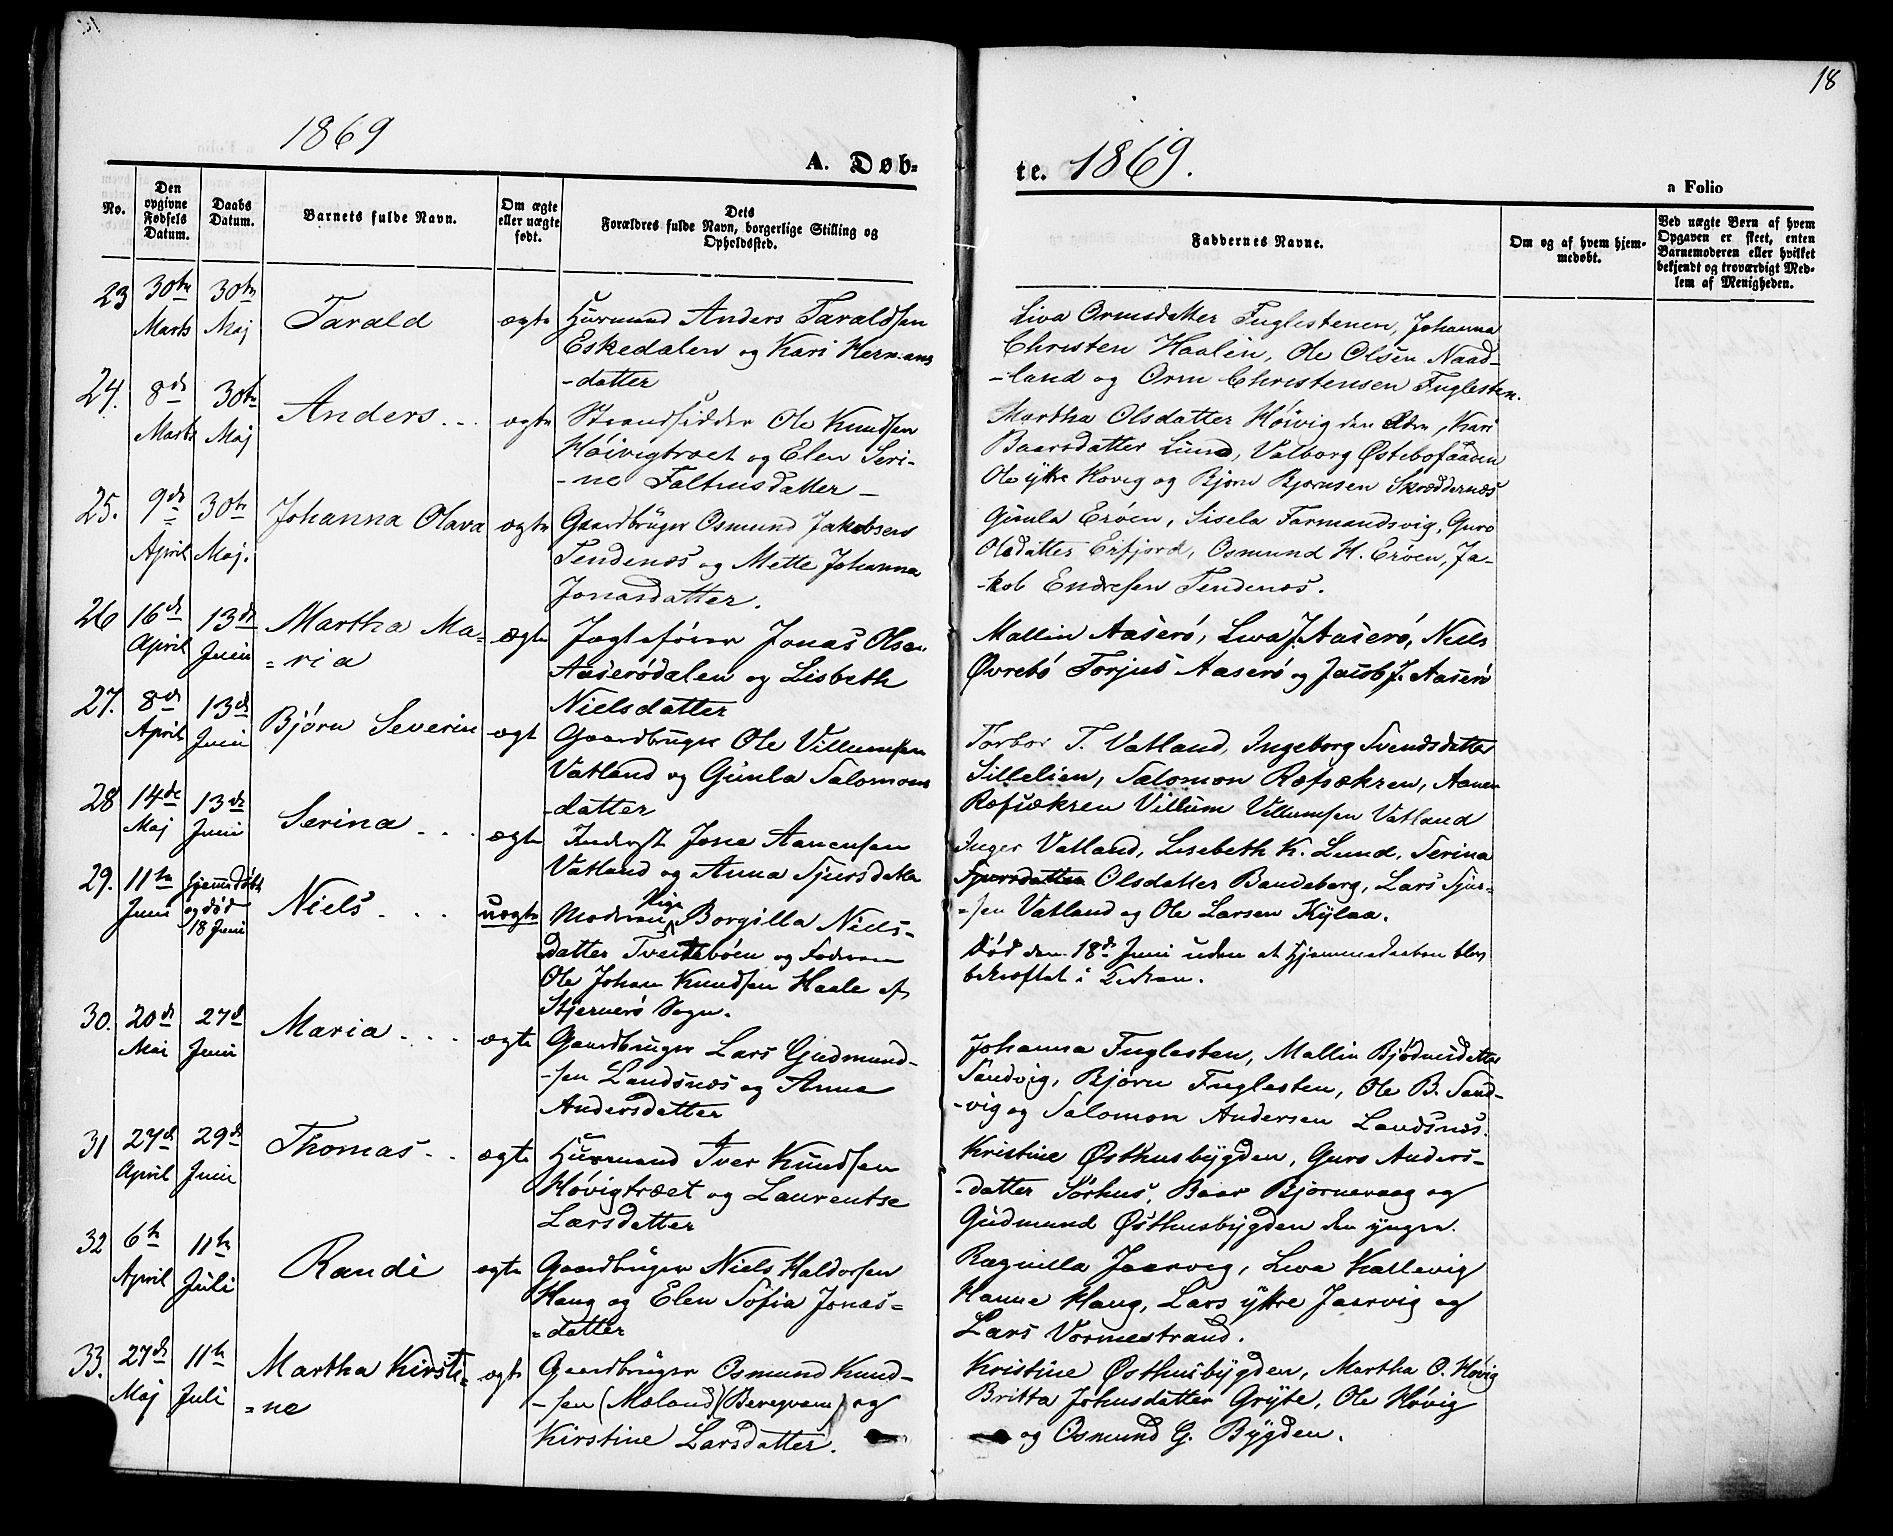 18
1869
A. Døb-
te. 1869.
a Folio
No.
Den opgivne Fødsels Datum.
Daabs Datum.
Barnets fulde Navn.
Om ægte eller uægte født.
Dets Forældres fulde Navn, borgerlige Stilling og Opholdssted.
Faddernes Navne.
Om og af hvem hjemmedøbt.
Ved uægte Børn af hvem Opgaven er skeet, enten Barnemoderen eller hvilket bekjendt og troværdigt Medlem af Menigheden.
23 30te Marts 30te Maj Tarald ægte Huusmand Anders Taraldsen
Eskedalen og Kari Hermans
-datter
Liva Ormsdatter Fuglestenen, Johanna
Christen Haalin, Ole Olsen Naad-
-land og Orm Christensen Fuglesten.
24. 8de Marts 30te Maj Anders ægte Strandsidder Ole Knudsen
Høivigtræet og Elen Seri-
-ne Faltinsdatter
Martha Olsdatter Høivig den Eldre, Kari
Baarsdatter Lund, Valborg Østebøfaaden
Ole ytre Høvig og Bjørn Bjørnsen Skræddernæs
25. 9de April 30te Maj. Johanna Olava ægte Gaardbruger Osmund Jakobsen
Tendenæs og Mette Johanna
Jonasdatter.
Gunla Erøen, Sisela Tarmandsvig, Guro
Olsdatter Erfjord, Osmund H. Erøen, Ja-
-kob Endresen Tendenæs.
26 16de April 13de Juni Martha Ma=
=ria ægte Jagtefører Jonas Olsen
Aaserødalen og Lisbeth
Nielsdatter
Mallin Aaserø, Liva J. Aaserø, Niels
Øvrebø Torjus Aaserø og Jacob J. Aaserø
27. 8de April 13de Juni Bjørn Severin ægt Gaardbruger Ole Villumsen
Vatland og Gunla Salomons
-datter
Torbor T. Vatland, Ingeborg Svendsdatter
Sillelien, Salomon Røfsækren, Aanen
Røfsækren Villum Villumsen Vatland
28 14de Maj 13de Juni Serina ægte Inderst Jone Aanensen
Vatland og Anna Sjursdatter
Inger Vatland, Lisebeth K. Lund, Serina
Sjursdatter Olsdatter Bandeberg, Lars Sjur-
=sen Vatland og Ole Larsen Kylaa.
29. 11te Juni hjemmedøbt og død 18 Juni Niels uægte Moderen Pige Borgilla Niels-
datter Tveitebøen og Faderen
Ole Johan Knudsen Haale af
Stjernerø Sogn.
Død den 18de Juni uden at Hjemmedaaben blev
bekræftet i Kirken.
30. 20de Mai 27d Juni Maria ægte Gaardbruger Lars Gudmund-
-sen Landsnæs og Anna
Andersdatter
Johanna Fuglesten, Mallin Bjødnsdatter
Sandvig, Bjørn Fuglesten, Ole B. Sand-
-vig og Salomon Andersen Landsnæs.
31 27de April 29de Juni Thomas ægte Huusmand Iver Knudsen
Høvigtræet og Laurentse
Larsdatter
Kristine Østhusbygden, Guro Anders-
-datter Sørhus, Baar Bjørneraag og
Gudmund Østhusbygden den yngre.
32 6te April 11te Juli Randi ægte Gaardbruger Niels Haldorsen
Haug og Elen Sofia Jonas=
=datter
Ragnilla Jaarvig, Liva Kallevig
Hanne Haug, Lars ytre Jaarvig og
Lars Vormestrand.
33. 27de Maj 11te Juli Martha Kirsti=
=ne ægte Gaardbruger Osmund Knud-
-sen (Mæland) (Beregvam) og
Kirstine Larsdatter.
Kristine Østhusbygden, Martha O. Høvig
Britta Johnsdatter Gryte, Ole Høvig
og Osmund G. Bygden.